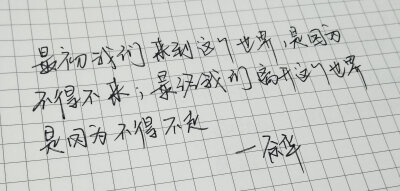 最初我们来到这个世界,是因为
不得不来;最终我们离开这个世界
是因为不得不走
—余华